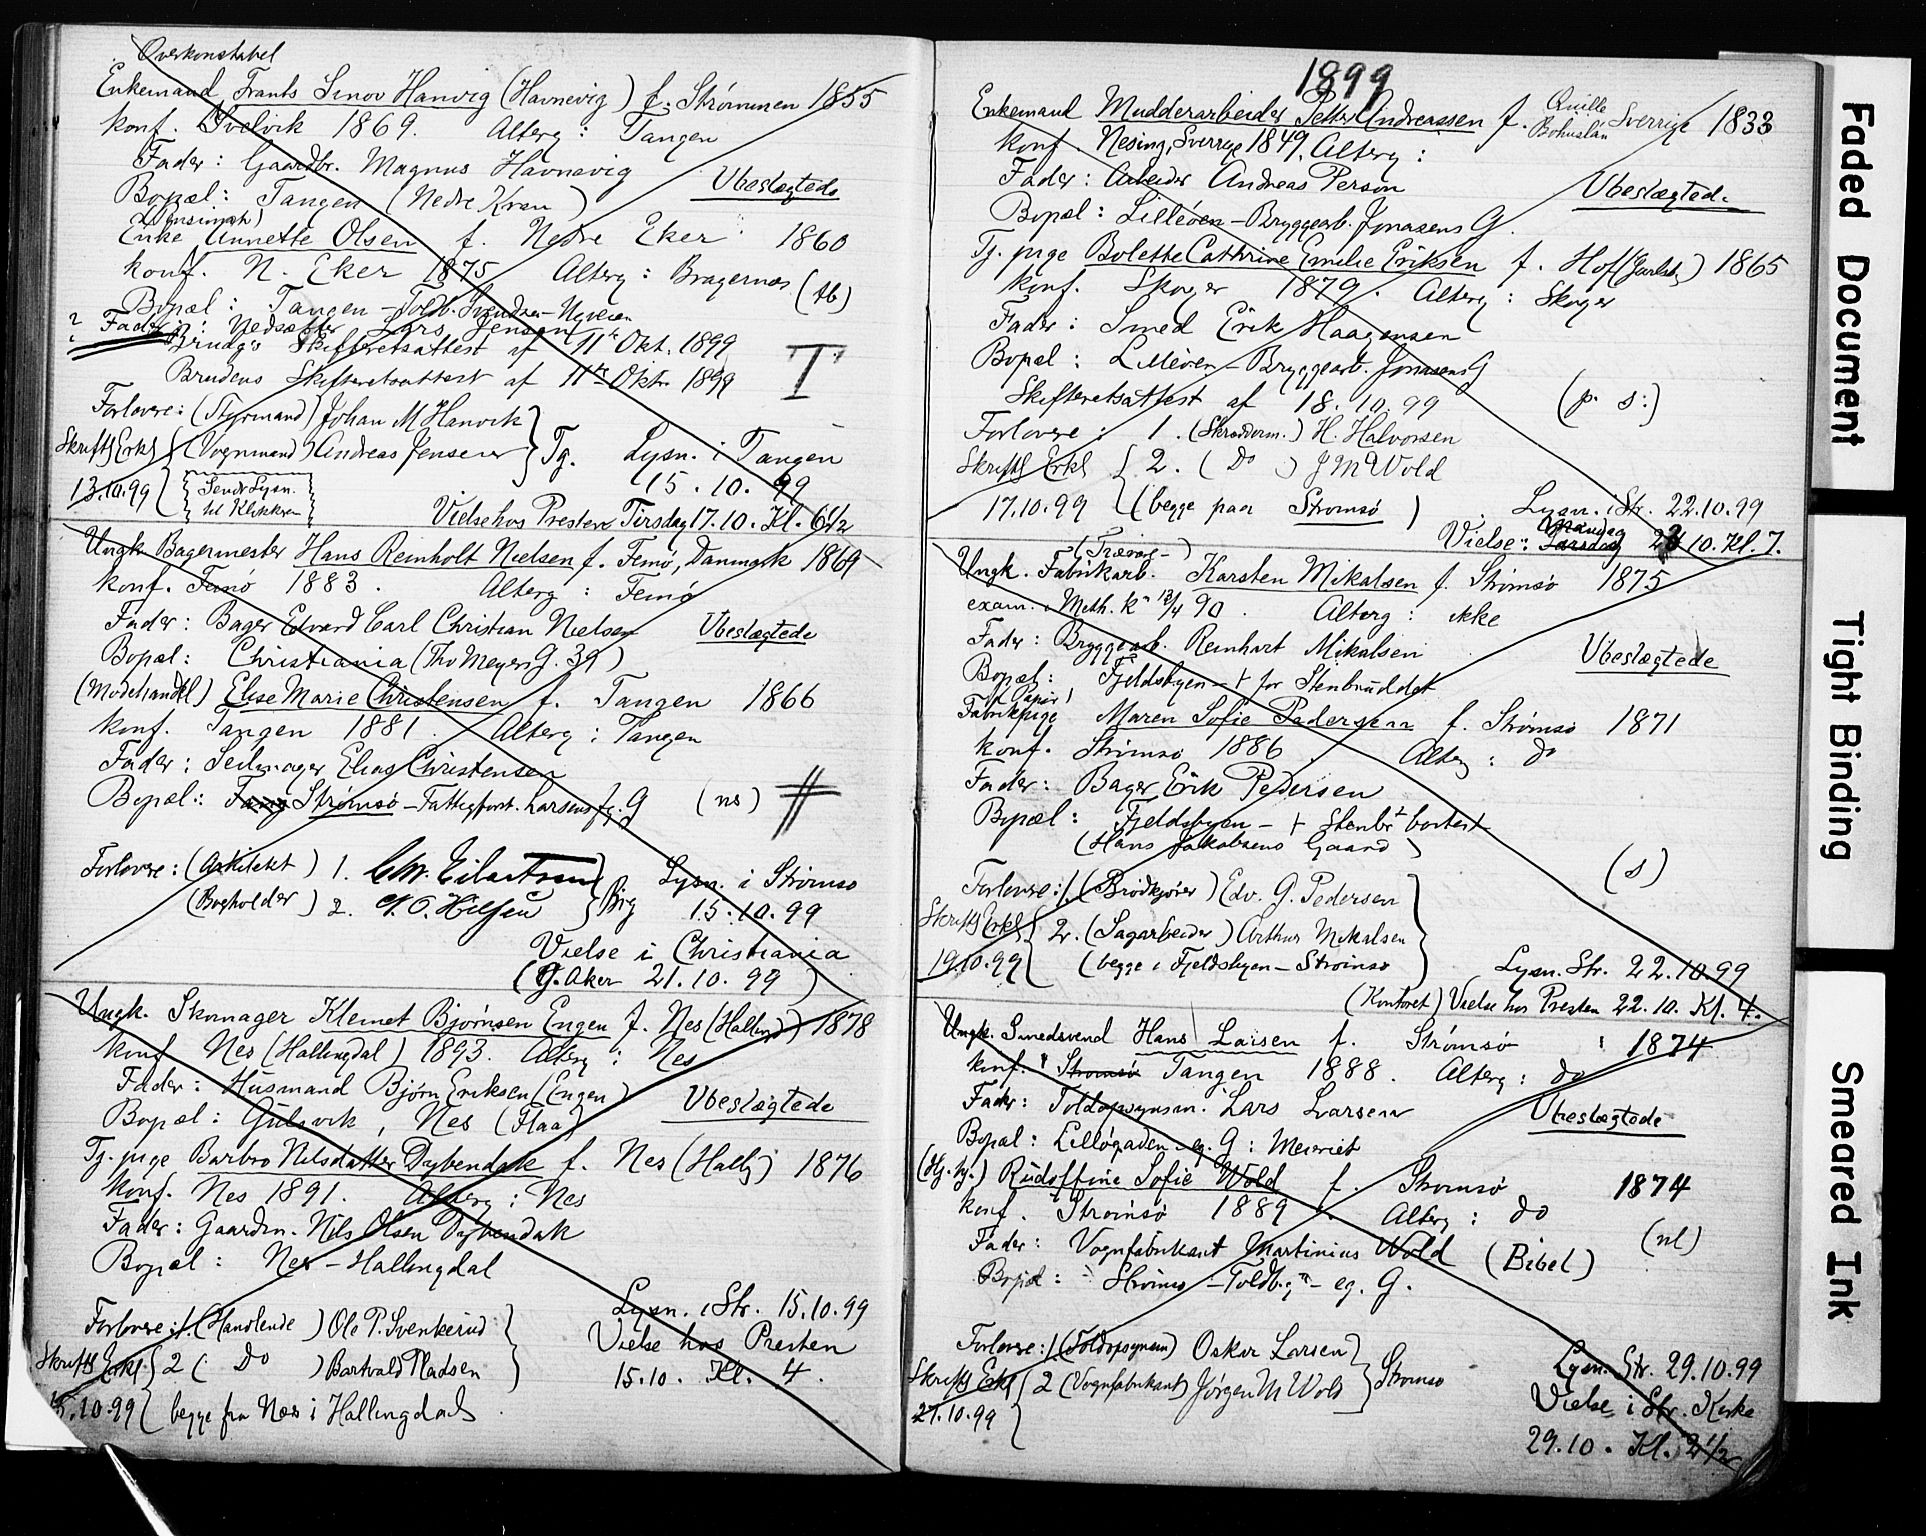 Overkonstabel
Enkemand Frants Simov Hanvig (Havnevig) f. Strømmen 1855
konf. Svelvik 1869. Alterg: Tangen
Fader: Gaardbr. Magnus Havnevig
Bopæl: Tangen (Nedre Kran) Ubeslægtede
Enke Annette Olsen f. Nedre Eker 1860
konf. N. Eker 1875 Alterg: Bragernæs (tb)
Bopæl: Tangen - Toldb. Svendsen - Nyveien
? Fader: Nedsætter Lars Jensen
Brudg's Skifteretsattest af 11te Okt. 1899
Brudens Skifteretsattest af 11te Okt. 1899 I
Forlovere: (Styrmand) Johan M Hanvik
Skriftl Erkl (Vognmand) Andreas Jensen Tg. Lysn. i Tangen
13.10.99 Send Lysn. til Klokkeren 15.10.99
Vielse hos Presten Tirsdag 17.10. Kl. 6 1/2
Ungk. Bagermester Hans Reinholt Nielsen f. Femø, Danmark 1869
konf. Femø 1883. Alterg: Femø
Fader: Bager Edvard Carl Christian Nielsen Ubeslægtede
Bopæl: Christiania (Tho Meyers G. 39)
(Modehandl) Elise Marie Christensen f. Tangen 1866
konf. Tangen 1881. Alterg: Tangen
Fader: Seilmager Elias Christensen
Bopæl: Tang Strømsø - Fattigforst. Larsens G (ns) #
Forlovere: (Arkitekt) 1. Chr. Eilertsen Lysn. i Strømsø
(Bogholder) 2. O. Nilsen Big 15.10.99
Vielse i Christiania
(G. Aker 21.10.99)
Ungk. Skomager Klemet Bjørnsen Engen f. Nes (Halling) 1878
konf. Nes (Hallingdal) 1893. Alterg: Nes
Fader: Husmand Bjørn Eriksen (Engen) Ubeslægtede
Bopæl: Gulsvik, Nes (Flaa)
Tg. pige Barbro Nilsdatter Dybendak f. Nes (Hallg) 1876
konf. Nes 1891. Alterg: Nes
Fader: Gaardm. Nils Olsen Dybendak
Bopæl: Nes - Hallingdal
Forlovere: 1. (Handlende) Ole P. Svenkerud Lysn. i Str. 15.10.99
Skriftl Erkl. 2 (Do) Bartvald Madsen Vielse hos Presten
15.10.99 begge fra Næs i Hallingdal 15.10. Kl. 4.
1899
Enkemand Mudderarbeider Petter Andreassen f. Quille Bohuslän Sverrige 1833
konf. Nesing, Sverrige 1849. Alterg:
Fader: Arbeider Andreas Person Ubeslægtede
Bopæl: Lilleøen - Bryggearb. Jonasens G.
Tg. pige Bolette Cathrine Emilie Eriksen f. Hof (Jarlsb) 1865
konf. Skoger 1879. Alterg: Skoger
Fader: Smed Erik Haagensen
Bopæl: Lilleøen - Bryggearb. Jonasens G
Skifteretsattest af 18.10.99 (p. s:)
Forlovere: 1. (Skrædderm.) H. Halvorsen
Skriftl Erkl 2. (Do) J M Wold
17.10.99 (begge paa Strømsø) Lysn. i Str. 22.10.99
Vielse: Mandag Tirsdag 23.10. Kl. 7.
(Trævare-)
Ungk. Fabrikarb. Karsten Mikalsen f. Strømsø 1875
exam. i Meth. K. 13/4 90. Alterg: ikke
Fader: Bryggearb. Reinhart Mikalsen Ubeslægtede
Bopæl: Fjeldsbyen - + for Stenbruddet
(Papir)
Fabrikpige Maren Sofie Pedersen f. Strømsø 1871
konf. Strømsø 1886 Alterg: do
Fader: Bager Erik Pedersen
Bopæl: Fjeldsbyen - + Stenbrt bortest
(Hans Jakobsens Gaard) (s)
Forlovere: 1. (Brødkjører) Edv. G. Pedersen
Skriftl Erkl 2. (Sagarbeider) Arthur Mikalsen
19.10.99 (begge i Fjeldsbyen - Strømsø Lysn. Str. 22.10.99
(Kontoret) Vielse hos Presten 22.10. Kl. 4.
Ungk. Smedsvend Hans Larsen f. Strømsø 1874
konf. i Strømsø Tangen 1888. Alterg: do
Fader: Toldopsynsm. Lars Larsen Ubeslægtede
Bopæl: Lilløgaden eg. G: Meieriet
(Hj. hj.) Rudolfine Sofie Wold f. Strømsø 1874
konf. Strømsø 1889. Alterg: do
Fader: Vognfabrikant Martinius Wold (Bibel) (nl)
Bopæl: Strømsø - Toldb.g. - eg. G.
Forlovere: 1 (Toldopsynsm) Oskar Larsen
Skriftl Erkl 2 (Vognfabrikant) Jørgen M Wold Strømsø Lysn. Str. 29.10.99
27.10.99 Vielse i Str. Kirke
29.10. Kl. 2 1/2
Faded Document
Tight Binding
Smeared Ink